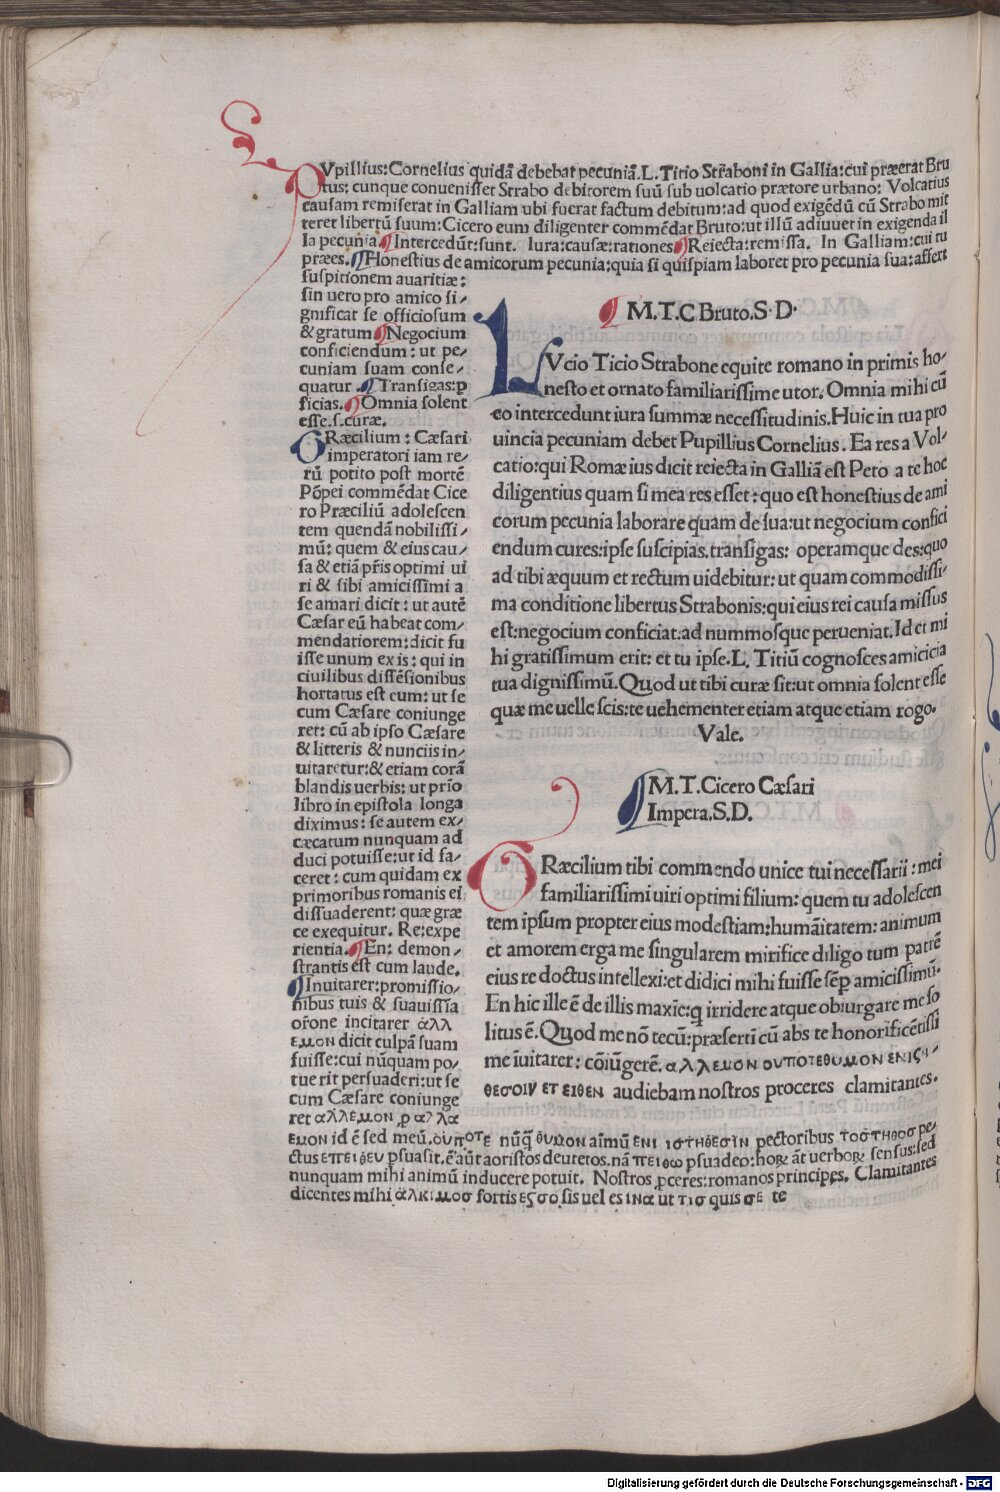 PVpillius:Cornelius quidā debebat pecuniā.L.Titio Straboni in Gallia:cui præerat Bru
tus: cunque conuenisset Strabo debitorem suū sub uolcatio prætore urbano: Volcatius
causam remiserat in Galliam ubi fuerat factum debitum:ad quod exigēdū cū Strabo mit
teret libertū suum:Cicero eum diligenter commēdat Bruto:ut illū adiuuet in exigenda il
la pecunia. Intercedūt:sunt. Iura:causæ:rationes. Reiecta:remissa. In Galliam:cui tu
præes. Honestius de amicorum pecunia:quia si quispiam laboret pro pecunia sua:affert
suspitionem auaritiæ:
sin uero pro amico si/
gnificat se officiosum
& gratum. Negocium
conficiendum: ut pe/
cuniam suam conse/
quatur. Transigas:p
ficias. Omnia solent
esse.s.curæ.
M.T.C Bruto.S.D.
LVcio Ticio Strabone equite romano in primis ho/
nesto et ornato familiarissime utor. Omnia mihi cū
eo intercedunt iura summæ necessitudinis.Huic in tua pro
uincia pecuniam debet Pupillius Cornelius. Ea res a Vol/
catio:qui Romæ ius dicit reiecta in Galliā est Peto a te hoc
diligentius quam si mea res esset: quo est honestius de ami
corum pecunia laborare quam de sua:ut negocium confici
endum cures:ipse suscipias.transigas: operamque des:quo
ad tibi æquum et rectum uidebitur: ut quam commodissi/
ma conditione libertus Strabonis:qui eius rei causa missus
est:negocium conficiat:ad nummosque perueniat.Id et mi
hi gratissimum erit: et tu ipse.L. Titiū cognosces amicicia
tua dignissimū.Quod ut tibi curæ sit:ut omnia solent esse
quæ me uelle scis:te uehementer etiam atque etiam rogo.
Vale.
RÆcilium: Cæsari
imperatori iam re/
rū potito post mortē
Pōpei commēdat Cice
ro Præciliū adolescen
tem quendā nobilissi/
mū: quem & eius cau/
sa & etiā pr̄is optimi ui
ri & sibi amicissimi a
se amari dicit: ut autē
Cæsar eū habeat com/
mendatiorem:dicit fu
isse unum ex is: qui in
ciuilibus dissēsionibus
hortatus est eum: ut se
cum Cæsare coniunge
ret: cū ab ipso Cæsare
& litteris & nunciis in/
uitaretur:& etiam corā
blandis uerbis: ut prio
libro in epistola longa
diximus: se autem ex/
cæcatum nunquam ad
duci potuisse:ut id fa/
ceret: cum quidam ex
primoribus romanis ei
dissuaderent: quæ græ
ce exequitur. Re:expe
rientia. En: demon/
strantis est cum laude.
Inuitarer:promissio/
nibus tuis & suauissīa
or̄one incitarer ἀλλ
εμον dicit culpā suam
fuisse:cui nūquam po/
tuerit persuaderi:ut se
cum Cæsare coniunge
ret αλλέμον
M.T.Cicero Cæsari
Impera.S.D.
RÆcilium tibi commendo unice tui necessarii: mei
familiarissimi uiri optimi filium: quem tu adolescen
tem ipsum propter eius modestiam:humāitatem: animum
et amorem erga me singularem mirifice diligo tum patrē
eius re doctus intellexi:et didici mihi fuisse sēp amicissimū.
En hic ille ē de illis maxīe:q irridere atque obiurgare me so
litus ē. Quod me nō tecū:præsertī cū abs te honorificētissi
me īuitarer: cōiūgerē. αλλεμον ουποτεθυμον ενις/
θεσοιν ετ ειθεν audiebam nostros proceres clamitantes.
εμον id ē sed meū.ουποτε nūq̄ θυμον aīmū ενι ιστηθεσιν pectoribus τοστηθοσ pe/
ctus επειθεν psuasit.ē aūt aoristos deutetos.nā πειθω psuadeo:hoꝝ āt uerboꝝ sensus:sed
nunquam mihi animū inducere potuit. Nostros pceres:romanos principes. Clamitantes
dicentes mihi ἀλκιμοσ fortis εσσο sis uel es ινα ut τισ quis σε te
Digitalisierung gefördert durch die Deutsche Forschungsgemeinschaft - DFG